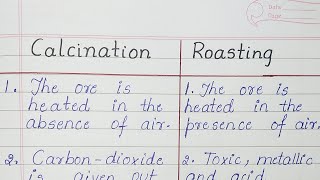 Date
Page
Calcination
Roasting
1. The ore is
heated in the
absence of air.
1. The ore is
heated in the
presence of air.
2. Carbon-dioxide
is given out
2. Toxic, metallic
and acid